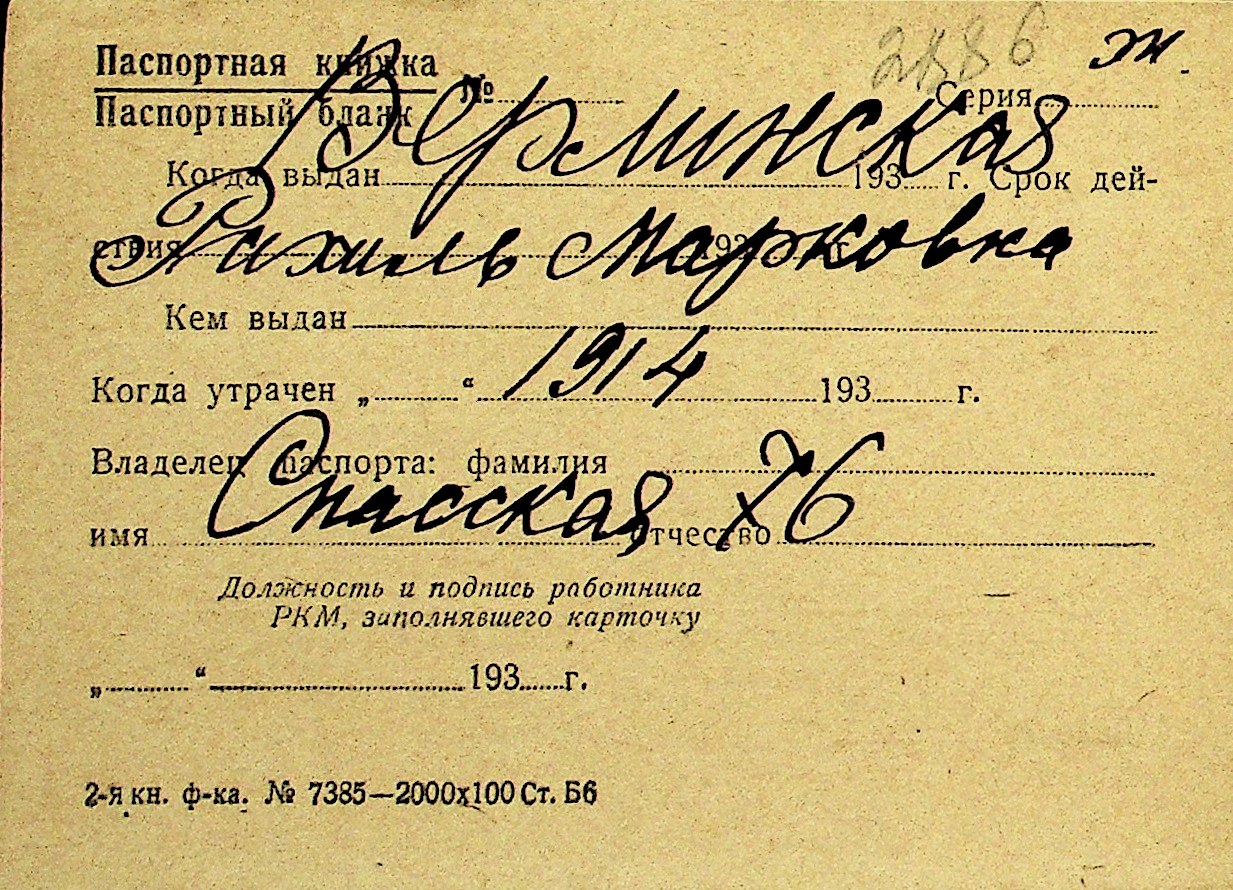 2886 ж.
Паспортная книжка
Паспортный бланк № Серия
Верлинская
Когда выдан 193 г. Срок дей-
ствия 193 г.
Рахиль Марковна
Кем выдан
1914
Когда утрачен „ “ 193 г.
Владелец паспорта: фамилия
Спасская 76
имя отчество
Должность и подпись работника
РКМ, заполнявшего карточку
„ “ 193 г.
2-я кн. ф-ка. № 7385—2000х100 Ст. Б6